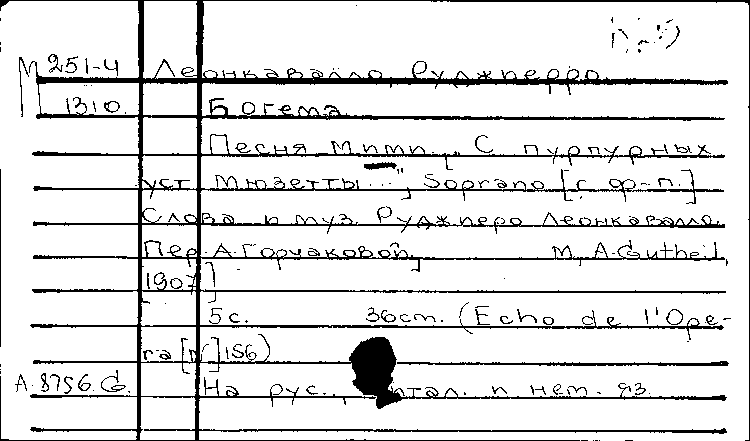 М 251-4 Леонкавалло, Руджиеро.
1310. Богема
Песня Мими „С пурпурных
уст Мюзетты...", Soprano [с ф-п.]
Слова и муз. Руджиеро Леонкавалло.
Пер. А. Горчаковой, М, A. Gutheil,
[1907]
5 с. 36 cm. (Echo de l'Ope-
ra [N] 156)
A. 8756. G. На рус., итал. и нем. яз.